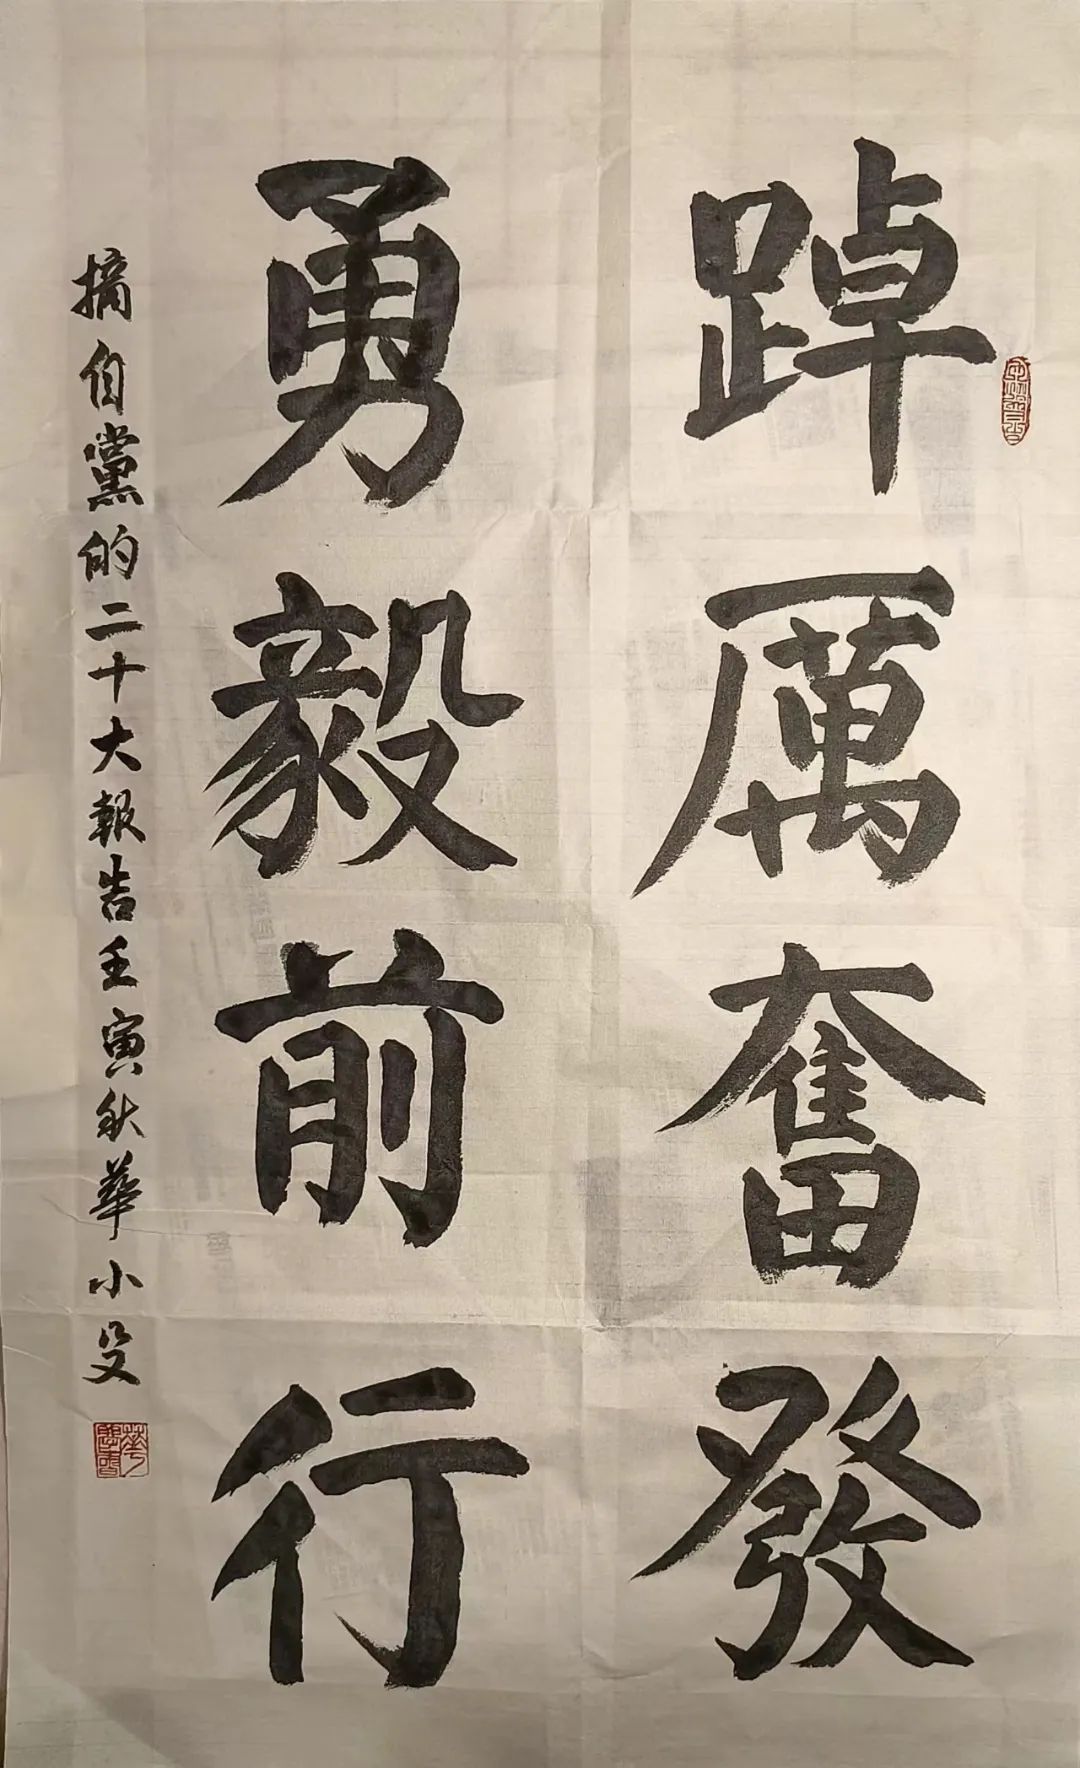 踔厲奮發
勇毅前行
摘自黨的二十大報告壬寅秋華小殳